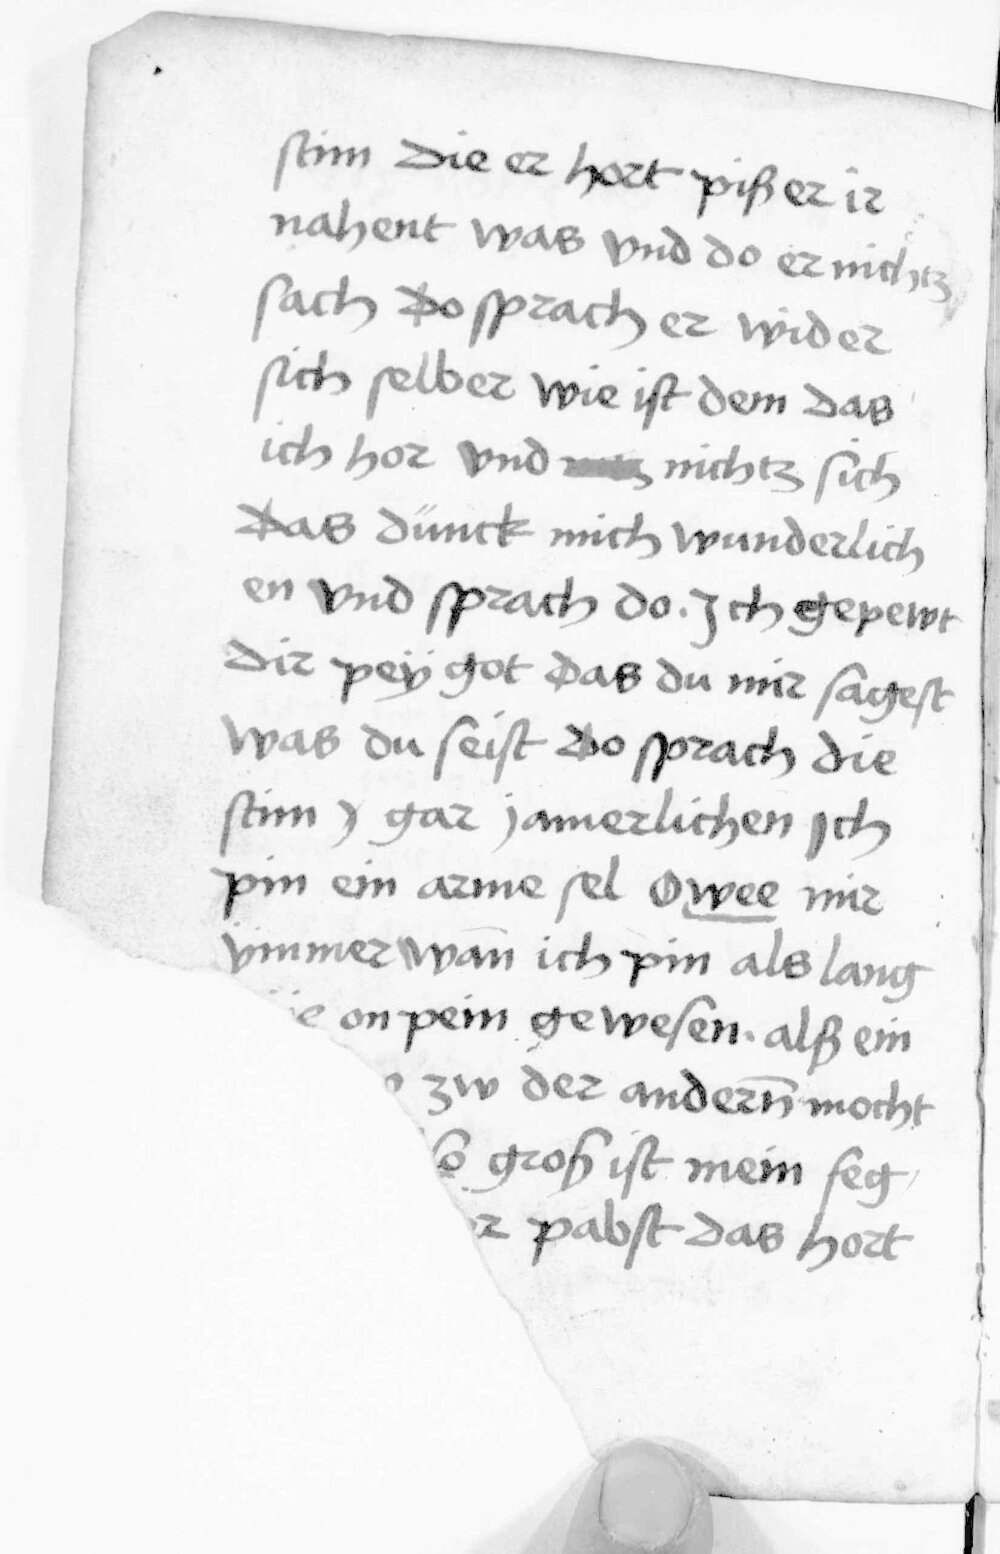 stim die er hort piß er ir
nahent was vnd do er nichtz
sach Do sprach er wider
sich selber wie ist dem das
ich hor vnd nichtz sich
Das dünck mich wunderlich
en vnd sprach do. Ich gepewt
dir peÿ got das du mir sagest
was du seist Do sprach die
stim gar jamerlichen Ich
pin ein arme sel Owee mir
ÿmmer wan̄ ich pin als lang
on pein gewesen. alß ein
zw der andern̄ mocht
so groß ist mein feg
pabst das hort